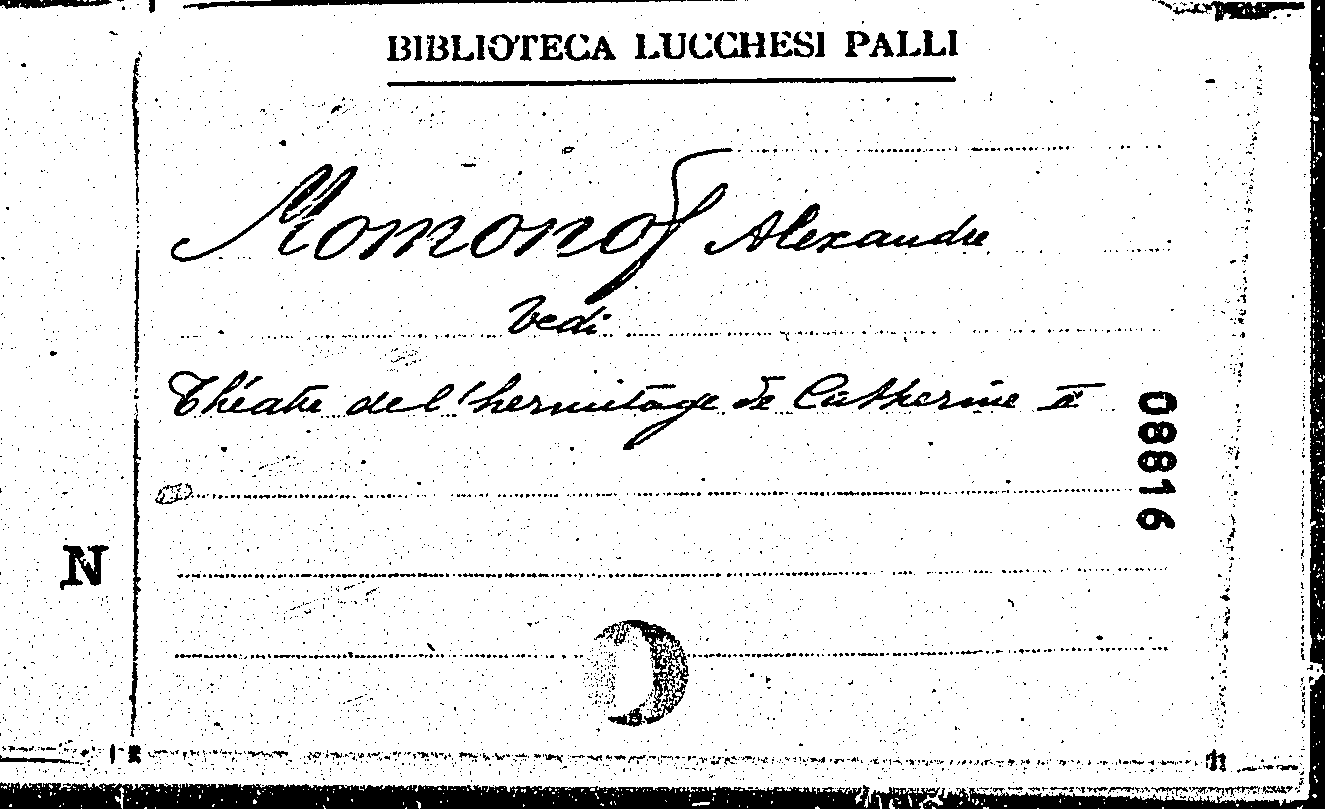 BIBLIOTECA LUCCHESI PALLI
Momonof Alexandre
Vedi
Théatre de l'hermitage de Catherine II
08816
N